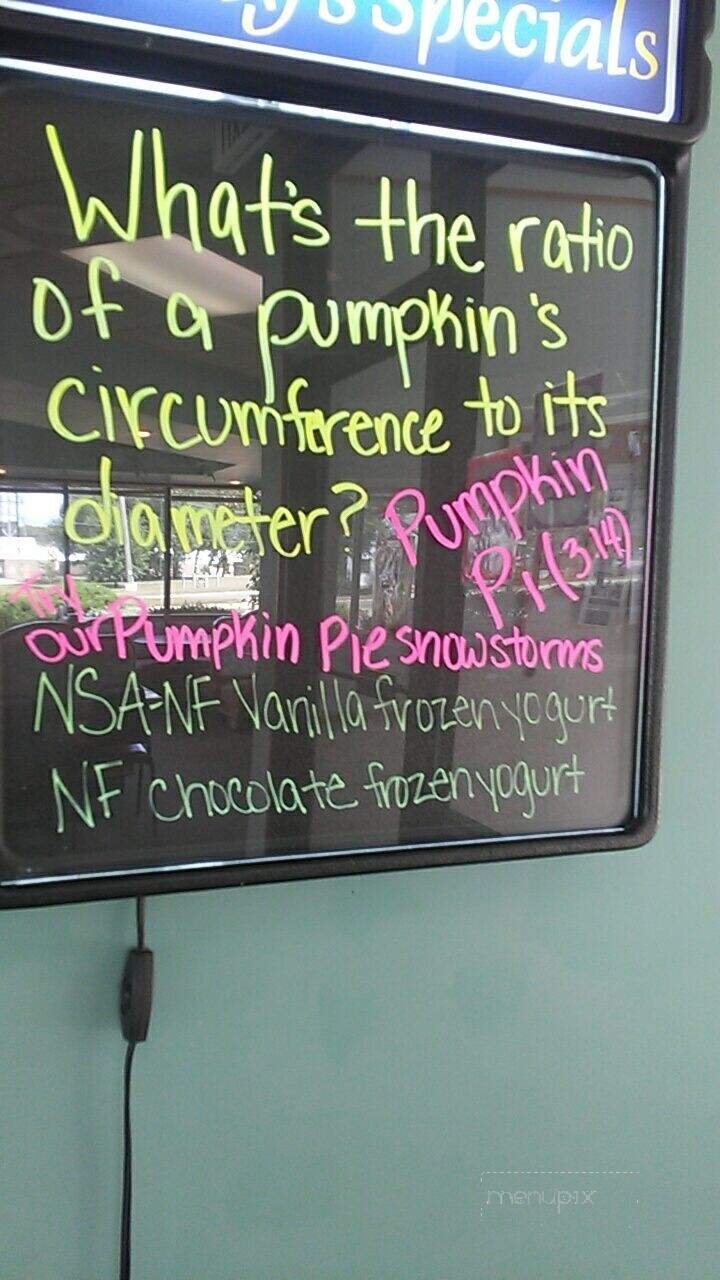 Specials
What's the ratio
of a pumpkin's
circumference to its
diameter? Pumpkin
Pi (3.14)
Try
our Pumpkin Pie snowstorms
NSA-NF Vanilla frozen yogurt
NF chocolate frozen yogurt
menupix